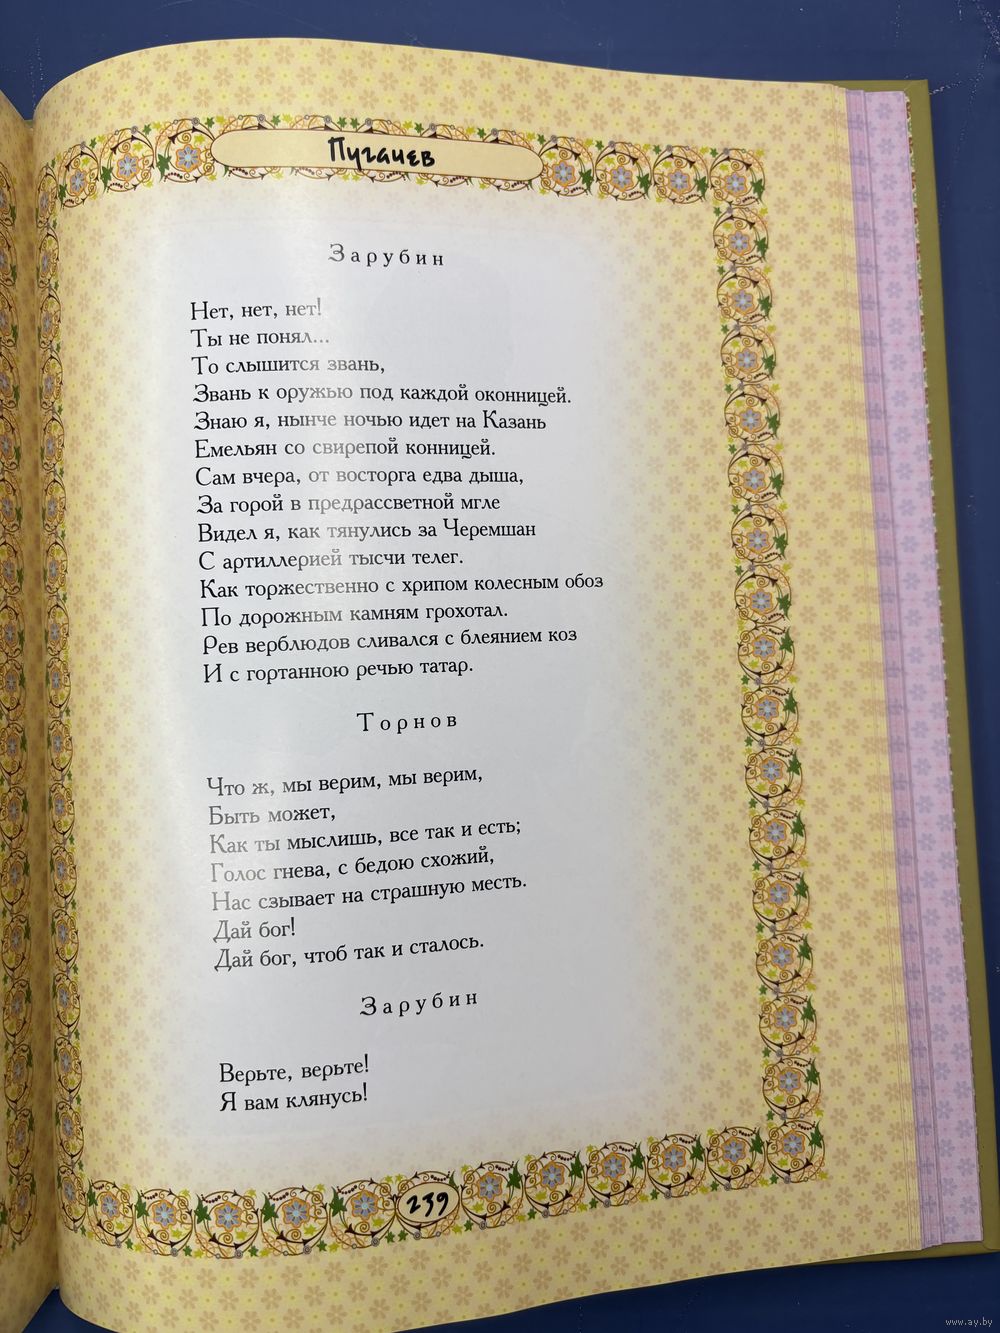 Пугачев
Зарубин
Нет, нет, нет!
Ты не понял...
То слышится звань,
Звань к оружью под каждой оконницей.
Знаю я, нынче ночью идет на Казань
Емельян со свирепой конницей.
Сам вчера, от восторга едва дыша,
За горой в предрассветной мгле
Видел я, как тянулись за Черемшан
С артиллерией тысчи телег.
Как торжественно с хрипом колесным обоз
По дорожным камням грохотал.
Рев верблюдов сливался с блеянием коз
И с гортанною речью татар.
Торнов
Что ж, мы верим, мы верим,
Быть может,
Как ты мыслишь, все так и есть;
Голос гнева, с бедою схожий,
Нас сзывает на страшную месть.
Дай бог!
Дай бог, чтоб так и сталось.
Зарубин
Верьте, верьте!
Я вам клянусь!
239
www.ay.by